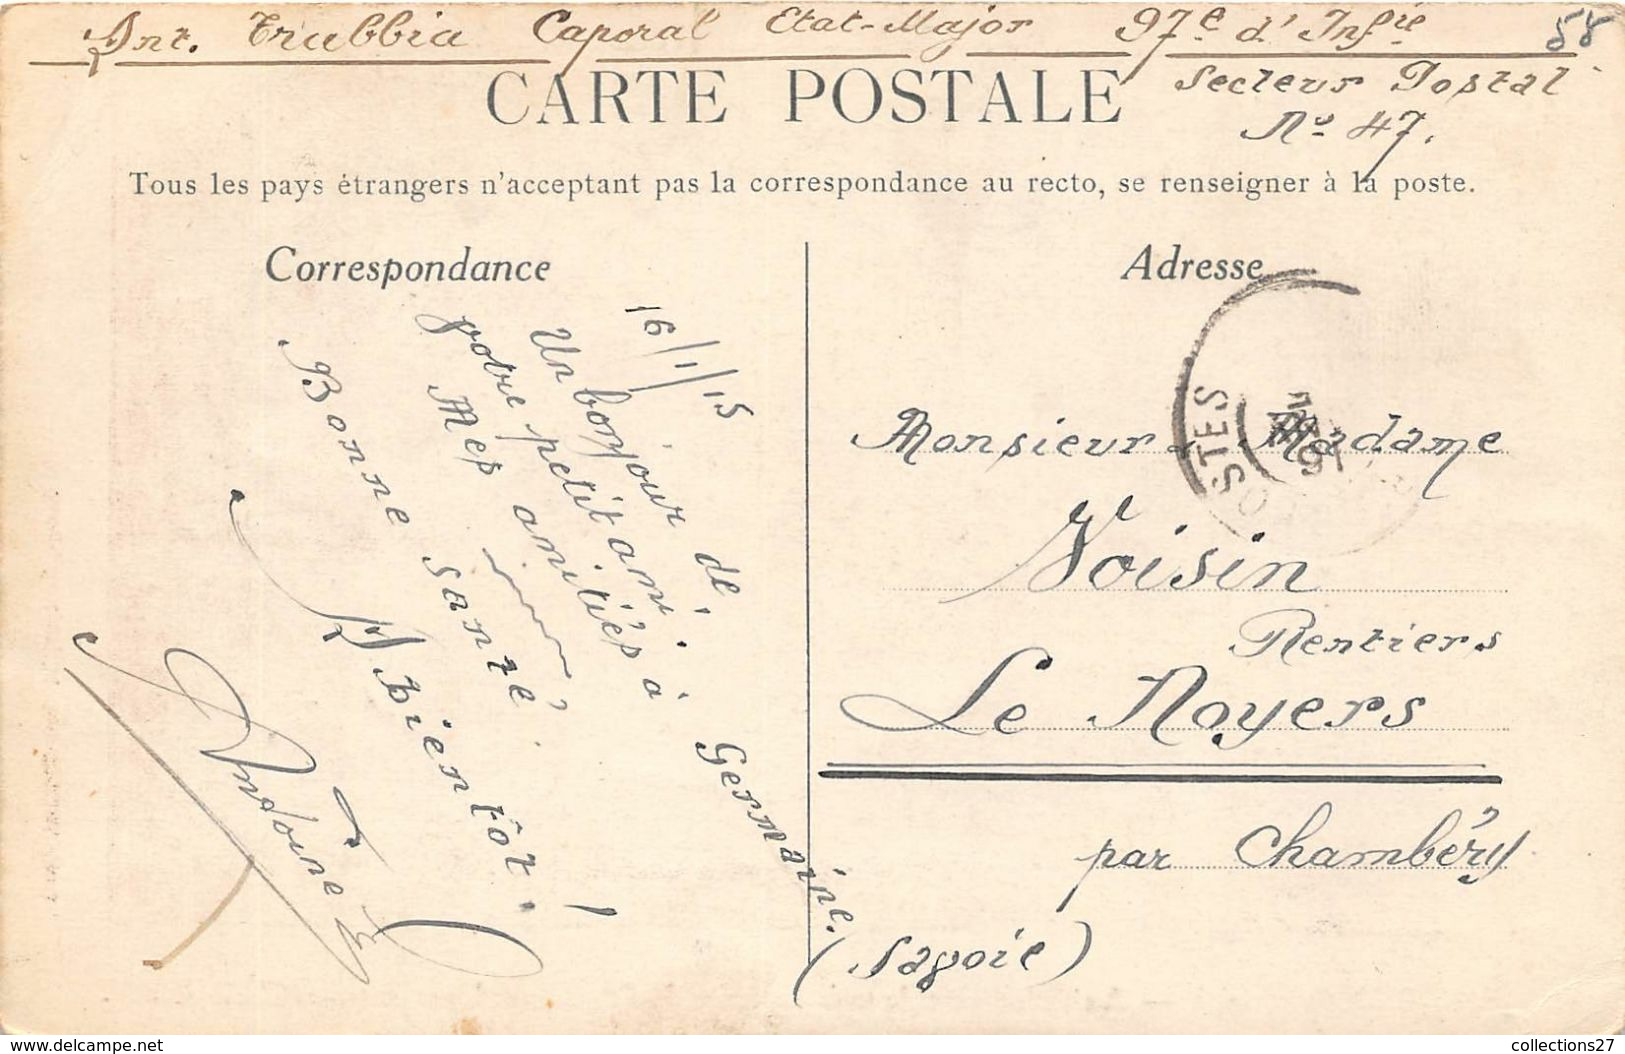 Ant. Trabbia Caporal Etat-Major 97e d'Infie
58
Secteur Postal
No 47.
CARTE POSTALE
Tous les pays étrangers n'acceptant pas la correspondance au recto, se renseigner à la poste.
Correspondance
Adresse
16/1/15
Un bonjour de
votre petit ami.
Mes amitiés à Germaine.
Bonne santé.
A bientôt!
Antoine
STES
Monsieur Madame
Voisin
Rentiers
Le Noyers
par Chambéry
(Savoie)
www.delcampe.net
collections27